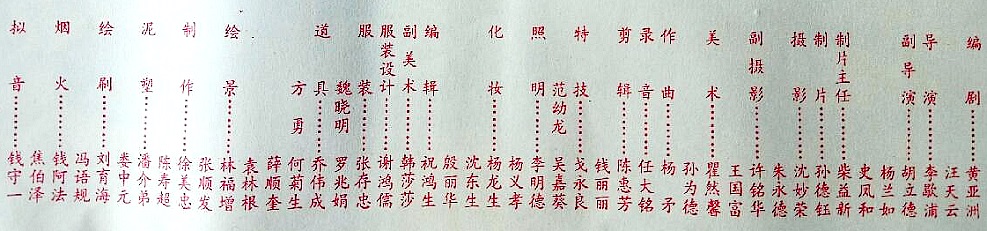 编剧……黄亚洲
汪天云
导演……李歇浦
副导演……胡立德
杨兰如
史凤和
制片主任……柴益新
制片……孙德钰
摄影……沈妙荣
朱永德
副摄影……许铭华
王国富
美术……瞿然馨
孙为德
作曲……杨矛
录音……任大铭
剪辑……陈惠芳
钱丽丽
特技……戈永良
范幼龙 吴嘉葵
照明……李明德
杨义孝
化妆……杨龙生
沈东生
殷丽华
编辑……祝鸿生
副美术……韩莎莎
服装设计……谢鸿儒
服装……张存忠
魏晓明 罗兆娟
道具……乔伟成
方勇 何菊生
薛顺奎
袁林根
绘景……林福增
张顺发
制作……徐美忠
陈寿超
泥塑……潘介弟
娄中元
绘刷……刘育海
冯语规
烟火……钱阿法
焦伯泽
拟音……钱守一